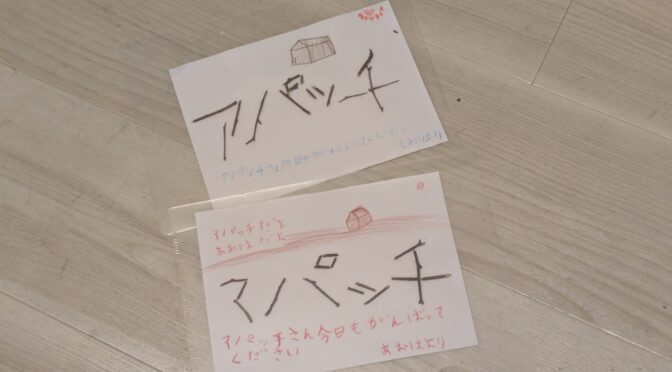 アパッチ
アパッチさん今日もがんばってください
しおりより
アパッチだよ
あおはだよ
アパッチ
アパッチさん今日もがんばって
ください
あおはより